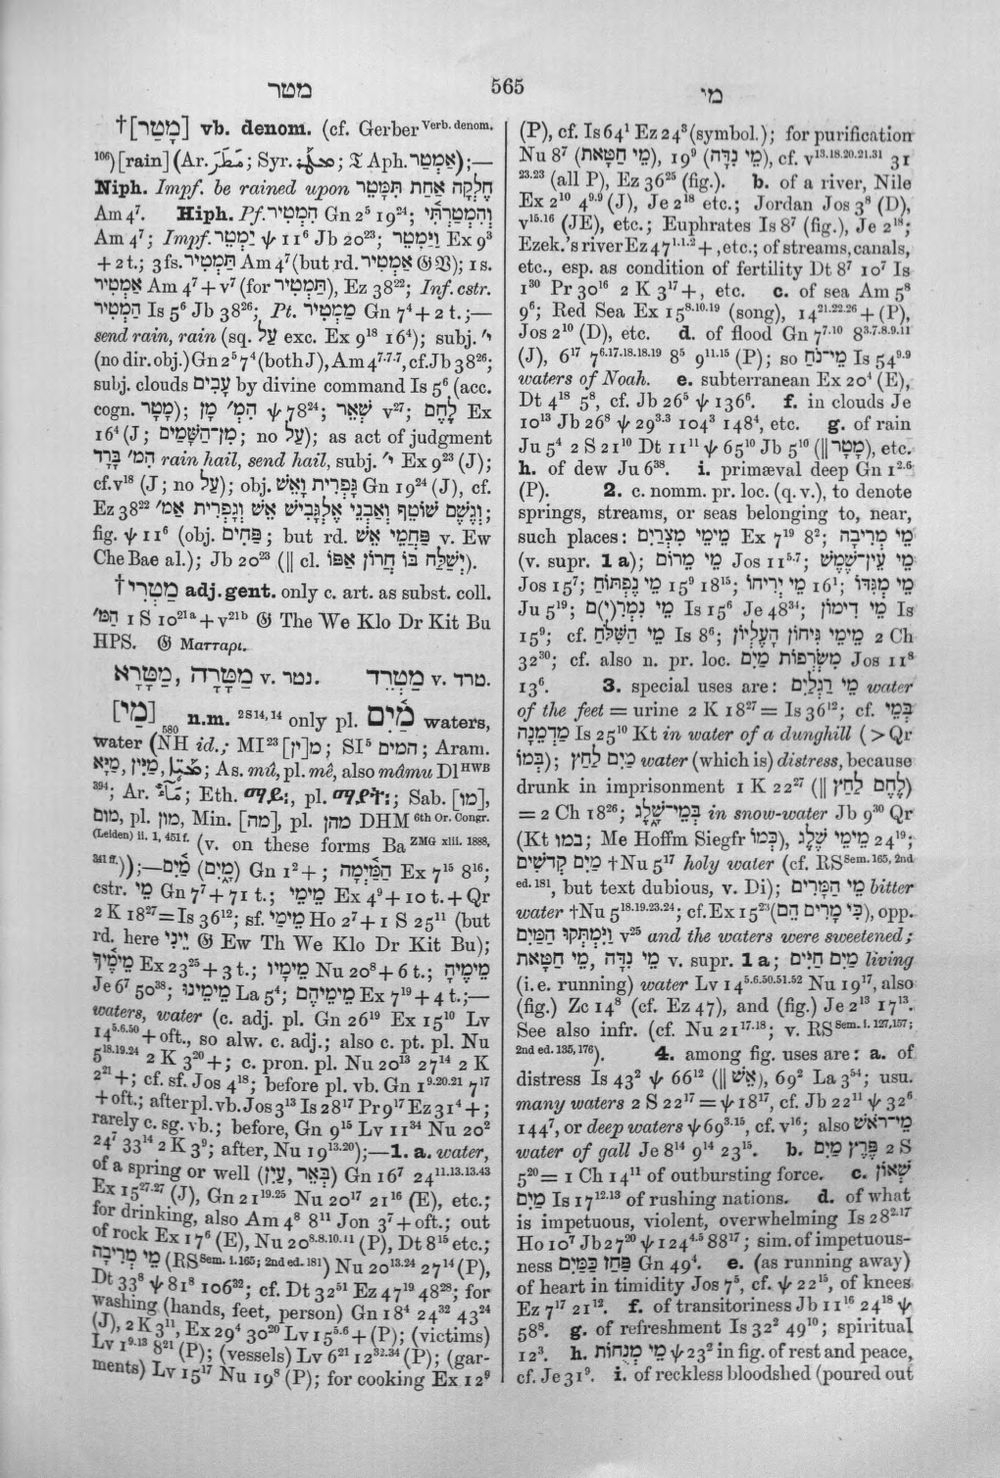 מטר
565
מי
†[מָטַר] vb. denom. (cf. Gerber Verb. denom.
106) [rain] (Ar. مَطَرَ; Syr. ; 𝔗 Aph. אַמְטַר);—
Niph. Impf. be rained upon חֶלְקָה אַחַת תִּמָּטֵר
Am 4⁷. Hiph. Pf. הִמְטִיר Gn 2⁵ 19²⁴; וְהִמְטַרְתִּי
Am 4⁷; Impf. יַמְטֵר ψ 11⁶ Jb 20²³; וַיַּמְטֵר Ex 9³
+ 2 t.; 3 fs. תַּמְטִיר Am 4⁷ (but rd. אַמְטִיר 𝔊 𝔙); 1 s.
אַמְטִיר Am 4⁷ + v⁷ (for תַּמְטִיר), Ez 38²²; Inf. cstr.
הַמְטִיר Is 5⁶ Jb 38²⁶; Pt. מַמְטִיר Gn 7⁴ + 2 t.;—
send rain, rain (sq. עַל exc. Ex 9¹⁸ 16⁴); subj. י׳
(no dir. obj.) Gn 2⁵ 7⁴ (both J), Am 4⁷·⁷·⁷, cf. Jb 38²⁶;
subj. clouds עָבִים by divine command Is 5⁶ (acc.
cogn. מָטָר); הִמ׳ מָן ψ 78²⁴; שְׁאֵר v²⁷; לֶחֶם Ex
16⁴ (J; מִן־הַשָּׁמַיִם; no עַל); as act of judgment
הִמ׳ בָּרָד rain hail, send hail, subj. י׳ Ex 9²³ (J);
cf. v¹⁸ (J; no עַל); obj. גָּפְרִית וָאֵשׁ Gn 19²⁴ (J), cf.
Ez 38²² וְגֶשֶׁם שׁוֹטֵף וְאַבְנֵי אֶלְגָּבִישׁ אֵשׁ וְגָפְרִית אַמ׳;
fig. ψ 11⁶ (obj. פַּחִים; but rd. פַּחֲמֵי אֵשׁ v. Ew
Che Bae al.); Jb 20²³ (|| cl. יְשַׁלַּח בּוֹ חֲרוֹן אַפּוֹ).
†מַטְרִי adj. gent. only c. art. as subst. coll.
הַמּ׳ 1 S 10²¹ᵃ + v²¹ᵇ 𝔊 The We Klo Dr Kit Bu
HPS. 𝔊 Ματταρι.
מַטָּרָה, מַטָּרָא v. נטר. מַטְרֵד v. טרד.
[מַי]₅₈₀ n.m. 2 S 14, 14 only pl. מַ֫יִם waters,
water (NH id.; MI²³ מ[ין]; SI⁵ המים; Aram.
מַיָּא, מַיִן, ; As. mû, pl. mê, also mâmu Dl HWB
394; Ar. مَاءٌ; Eth. ማይ፡, pl. ማያት፡; Sab. [מו],
מום, pl. מון, Min. [מה], pl. מהן DHM 6th Or. Congr.
(Leiden) ii. 1, 451 f. (v. on these forms Ba ZMG xlii. 1888,
341 ff.));—מַיִם (מָיִם) Gn 1² +; הַמַּיְמָה Ex 7¹⁵ 8¹⁶;
cstr. מֵי Gn 7⁷ + 71 t.; מֵימֵי Ex 4⁹ + 10 t. + Qr
2 K 18²⁷ = Is 36¹²; sf. מֵימַי Ho 2⁷ + 1 S 25¹¹ (but
rd. here יֵינִי 𝔊 Ew Th We Klo Dr Kit Bu);
מֵימֶיךָ Ex 23²⁵ + 3 t.; מֵימָיו Nu 20⁸ + 6 t.; מֵימֶיהָ
Je 6⁷ 50³⁸; מֵימֵינוּ La 5⁴; מֵימֵיהֶם Ex 7¹⁹ + 4 t.;—
waters, water (c. adj. pl. Gn 26¹⁹ Ex 15¹⁰ Lv
14⁵·⁶·⁵⁰ + oft., so alw. c. adj.; also c. pt. pl. Nu
5¹⁸·¹⁹·²⁴ 2 K 3²⁰ +; c. pron. pl. Nu 20¹³ 27¹⁴ 2 K
2²¹ +; cf. sf. Jos 4¹⁸; before pl. vb. Gn 1⁹·²⁰·²¹ 7¹⁷
+ oft.; after pl. vb. Jos 3¹³ Is 28¹⁷ Pr 9¹⁷ Ez 31⁴ +;
rarely c. sg. vb.; before, Gn 9¹⁵ Lv 11³⁴ Nu 20²
24⁷ 33¹⁴ 2 K 3⁹; after, Nu 19¹³·²⁰);—1. a. water,
of a spring or well (בְּאֵר, עַיִן) Gn 16⁷ 24¹¹·¹³·¹³·⁴³
Ex 15²⁷·²⁷ (J), Gn 21¹⁹·²⁵ Nu 20¹⁷ 21¹⁶ (E), etc.;
for drinking, also Am 4⁸ 8¹¹ Jon 3⁷ + oft.; out
of rock Ex 17⁶ (E), Nu 20⁸·⁸·¹⁰·¹¹ (P), Dt 8¹⁵ etc.;
מֵי מְרִיבָה (RS Sem. i. 165; 2nd ed. 181) Nu 20¹³·²⁴ 27¹⁴ (P),
Dt 33⁸ ψ 81⁸ 106³²; cf. Dt 32⁵¹ Ez 47¹⁹ 48²⁸; for
washing (hands, feet, person) Gn 18⁴ 24³² 43²⁴
(J), 2 K 3¹¹, Ex 29⁴ 30²⁰ Lv 15⁵·⁶ + (P); (victims)
Lv 1⁹·¹³ 8²¹ (P); (vessels) Lv 6²¹ 12³²·³⁴ (P); (gar-
ments) Lv 15¹⁷ Nu 19⁸ (P); for cooking Ex 12⁹
(P), cf. Is 64¹ Ez 24³ (symbol.); for purification
Nu 8⁷ (מֵי חַטָּאת), 19⁹ (מֵי נִדָּה), cf. v¹³·¹⁸·²⁰·²¹·³¹ 31
²³·²³ (all P), Ez 36²⁵ (fig.). b. of a river, Nile
Ex 2¹⁰ 4⁹·⁹ (J), Je 2¹⁸ etc.; Jordan Jos 3⁸ (D),
v¹⁵·¹⁶ (JE), etc.; Euphrates Is 8⁷ (fig.), Je 2¹⁸;
Ezek.'s river Ez 47¹·¹·² +, etc.; of streams, canals,
etc., esp. as condition of fertility Dt 8⁷ 10⁷ Is
1³⁰ Pr 30¹⁶ 2 K 3¹⁷ +, etc. c. of sea Am 5⁸
9⁶; Red Sea Ex 15⁸·¹⁰·¹⁹ (song), 14²¹·²²·²⁶ + (P),
Jos 2¹⁰ (D), etc. d. of flood Gn 7⁷·¹⁰ 8³·⁷·⁸·⁹·¹¹
(J), 6¹⁷ 7⁶·¹⁷·¹⁸·¹⁸·¹⁹ 8⁵ 9¹¹·¹⁵ (P); so מֵי־נֹחַ Is 54⁹·⁹
waters of Noah. e. subterranean Ex 20⁴ (E),
Dt 4¹⁸ 5⁸, cf. Jb 26⁵ ψ 136⁶. f. in clouds Je
10¹³ Jb 26⁸ ψ 29³·³ 104³ 148⁴, etc. g. of rain
Ju 5⁴ 2 S 21¹⁰ Dt 11¹¹ ψ 65¹⁰ Jb 5¹⁰ (|| מָטָר), etc.
h. of dew Ju 6³⁸. i. primæval deep Gn 1²·⁶
(P). 2. c. nomm. pr. loc. (q. v.), to denote
springs, streams, or seas belonging to, near,
such places: מֵימֵי מִצְרַיִם Ex 7¹⁹ 8²; מֵי מְרִיבָה
(v. supr. 1 a); מֵי מֵרוֹם Jos 11⁵·⁷; מֵי עֵין־שֶׁמֶשׁ
Jos 15⁷; מֵי נֶפְתּוֹחַ 15⁹ 18¹⁵; מֵי יְרִיחוֹ 16¹; מֵי מְגִדּוֹ
Ju 5¹⁹; מֵי נִמְרִ(י)ם Is 15⁶ Je 48³⁴; מֵי דִימוֹן Is
15⁹; cf. מֵי הַשִּׁלֹחַ Is 8⁶; מֵימֵי גִיחוֹן הָעֶלְיוֹן 2 Ch
32³⁰; cf. also n. pr. loc. מִשְׂרְפוֹת מַיִם Jos 11⁸
13⁶. 3. special uses are: מֵי רַגְלַיִם water
of the feet = urine 2 K 18²⁷ = Is 36¹²; cf. בְּמֵי
מַדְמֵנָה Is 25¹⁰ Kt in water of a dunghill (> Qr
בְּמוֹ); מַיִם לַחַץ water (which is) distress, because
drunk in imprisonment 1 K 22²⁷ (|| לֶחֶם לַחַץ)
= 2 Ch 18²⁶; בְּמֵי־שָׁלֶג in snow-water Jb 9³⁰ Qr
(Kt במו; Me Hoffm Siegfr כְּמוֹ), מֵימֵי שֶׁלֶג 24¹⁹;
מַיִם קְדֹשִׁים † Nu 5¹⁷ holy water (cf. RS Sem. 165, 2nd
ed. 181, but text dubious, v. Di); מֵי הַמָּרִים bitter
water † Nu 5¹⁸·¹⁹·²³·²⁴; cf. Ex 15²³ (כִּי מָרִים הֵם), opp.
וַיִּמְתְּקוּ הַמַּיִם v²⁵ and the waters were sweetened;
מֵי נִדָּה, מֵי חַטָּאת v. supr. 1 a; מַיִם חַיִּים living
(i. e. running) water Lv 14⁵·⁶·⁵⁰·⁵¹·⁵² Nu 19¹⁷, also
(fig.) Zc 14⁸ (cf. Ez 47), and (fig.) Je 2¹³ 17¹³.
See also infr. (cf. Nu 21¹⁷·¹⁸; v. RS Sem. i. 127, 157;
2nd ed. 135, 176). 4. among fig. uses are: a. of
distress Is 43² ψ 66¹² (|| אֵשׁ), 69² La 3⁵⁴; usu.
many waters 2 S 22¹⁷ = ψ 18¹⁷, cf. Jb 22¹¹ ψ 32⁶
144⁷, or deep waters ψ 69³·¹⁵, cf. v¹⁶; also מֵי־רֹאשׁ
water of gall Je 8¹⁴ 9¹⁴ 23¹⁵. b. פֶּרֶץ מַיִם 2 S
5²⁰ = 1 Ch 14¹¹ of outbursting force. c. שְׁאוֹן
מַיִם Is 17¹²·¹³ of rushing nations. d. of what
is impetuous, violent, overwhelming Is 28²·¹⁷
Ho 10⁷ Jb 27²⁰ ψ 124⁴·⁵ 88¹⁷; sim. of impetuous-
ness פַּחַז כַּמַּיִם Gn 49⁴. e. (as running away)
of heart in timidity Jos 7⁵, cf. ψ 22¹⁵, of knees
Ez 7¹⁷ 21¹². f. of transitoriness Jb 11¹⁶ 24¹⁸ ψ
58⁸. g. of refreshment Is 32² 49¹⁰; spiritual
12³. h. מֵי מְנֻחוֹת ψ 23² in fig. of rest and peace,
cf. Je 31⁹. i. of reckless bloodshed (poured out